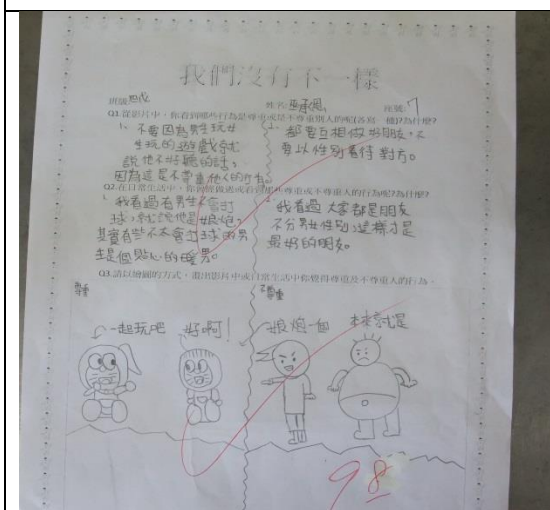 我們沒有不一樣
班級:四戊 姓名:巫承恩 座號:7
Q1.從影片中,你看到哪些行為是尊重或是不尊重別人的呢(各寫一種)?為什麼?
1. 不要因為男生玩女
生玩的遊戲就
說他不好聽的話,
因為這是不尊重他人的行為。
2. 都要互相做好朋友,不
要以性別看待對方。
Q2.在日常生活中,你曾經做過或看到那些尊重或不尊重人的行為呢?為什麼?
我看過有男生不會打
球,就說他是娘炮,
其實有些不太會打球的男
生是個貼心的暖男。
我看過大家都是朋友
不分男女性別,這樣才是
最好的朋友。
Q3.請以繪圖的方式,畫出影片中或日常生活中你覺得尊重及不尊重人的行為。
尊重
不尊重
一起玩吧
好啊!
娘炮一個
本來就是
98